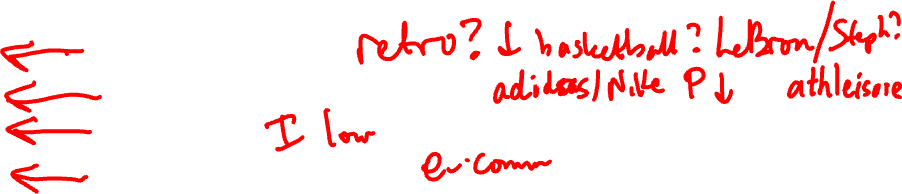 ← retro? ↓ basketball? LeBron/Steph?
← adidas/Nike P ↓ athleisure
← I low
← e-comm